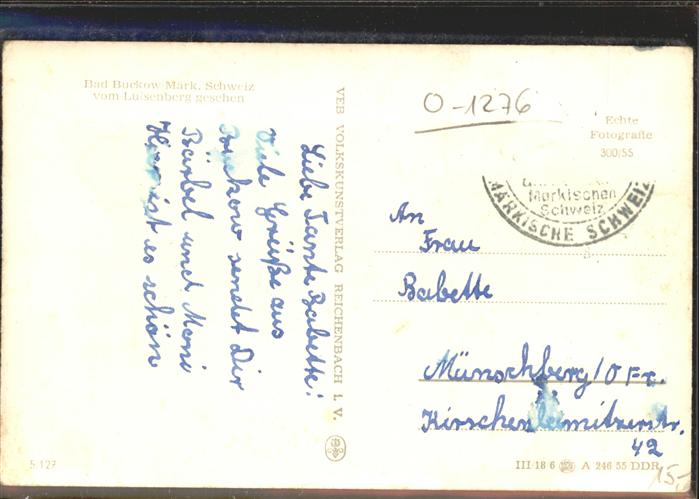 Bad Buckow Märk. Schweiz
vom Luisenberg gesehen
Liebe Tante Babette!
Viele Grüße aus
Buckow sendet Dir
Bärbel und Mani
Hier ist es schön
VEB VOLKSKUNSTVERLAG REICHENBACH I. V.
O-1276
Echte
Fotografie
300/55
Märkischen
Schweiz
MÄRKISCHE SCHWEIZ
An
Frau
Babette
Münschberg/OFr.
Kirschenlamitzerstr.
42
5 127
III/18 6 A 246 55 DDR
15,-